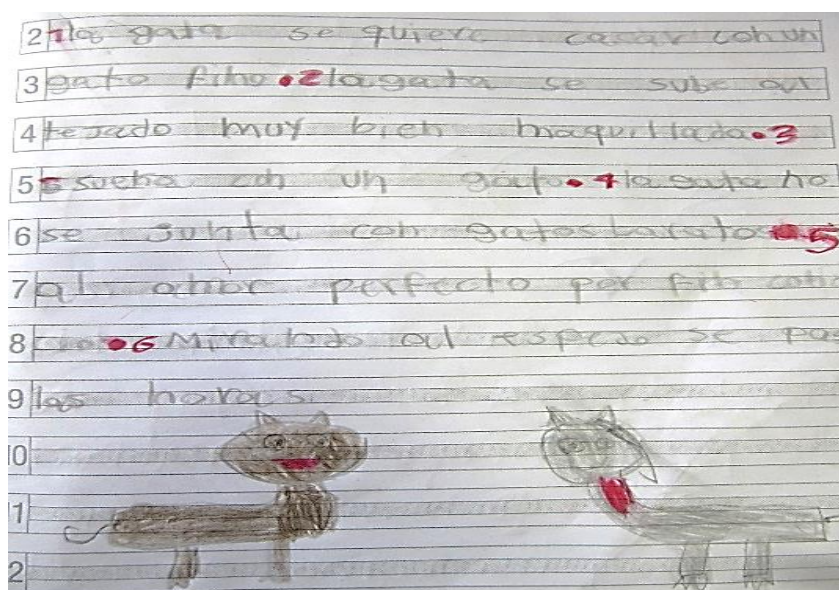 2 1 la gata se quiere casar con un
3 gato fino. 2 la gata se sube al
4 tejado muy bien maquillada. 3
5 sueña con un gato. 4 la gata no
6 se junta con gatos barato. 5
7 al amor perfecto por fin
8 . 6 Mirando al espejo se pa
9 las horas.
10
11
12